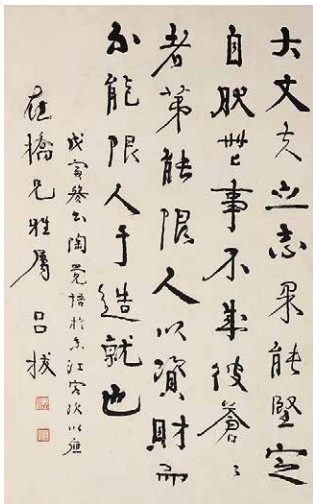 大丈夫立志果能堅定
自世事不成彼蒼々
者第能限人以資財而
不能限人于造就也
戊寅陶覺悟於江客次以應
橋兄雅屬 吕